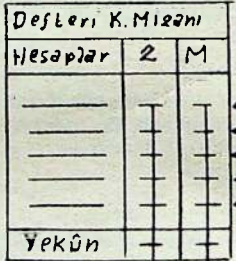 Defteri K. Mizanı
Hesaplar 2 M
Yekûn